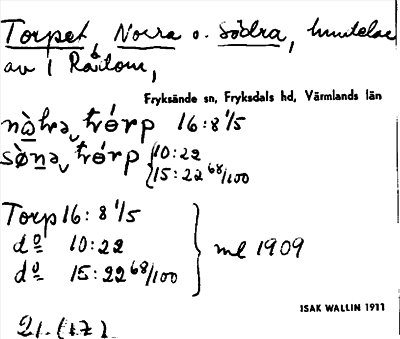 Torpet, Norra o. Södra, hmntelae
av 1 Råtom,
Fryksände sn, Fryksdals hd, Värmlands län
nòhrə tórp 16:8 1/5
sønə tórp 10:22
15:22 68/100
Torp 16:8 1/5
do 10:22
do 15:22 68/100
ml 1909
ISAK WALLIN 1911